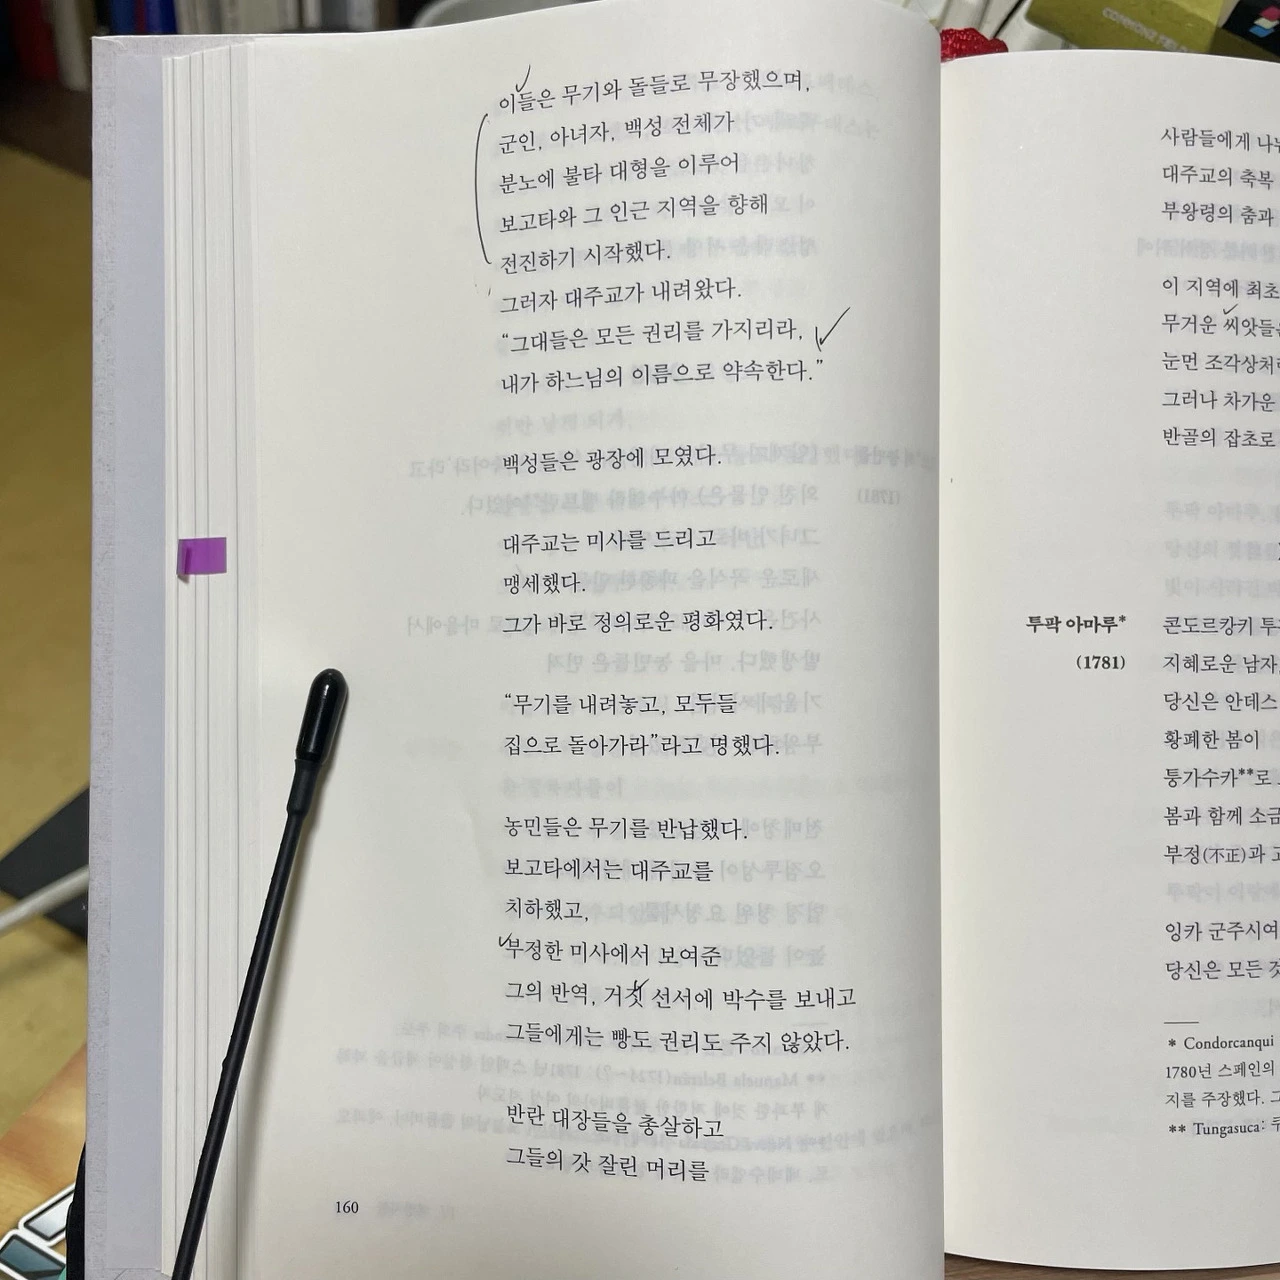 이들은 무기와 돌들로 무장했으며,
군인, 아녀자, 백성 전체가
분노에 불타 대형을 이루어
보고타와 그 인근 지역을 향해
전진하기 시작했다.
그러자 대주교가 내려왔다.
“그대들은 모든 권리를 가지리라,
내가 하느님의 이름으로 약속한다.”
백성들은 광장에 모였다.
대주교는 미사를 드리고
맹세했다.
그가 바로 정의로운 평화였다.
“무기를 내려놓고, 모두들
집으로 돌아가라”라고 명했다.
농민들은 무기를 반납했다.
보고타에서는 대주교를
치하했고,
부정한 미사에서 보여준
그의 반역, 거짓 선서에 박수를 보내고
그들에게는 빵도 권리도 주지 않았다.
반란 대장들을 총살하고
그들의 갓 잘린 머리를
160
사람들에게
대주교의 축복
부왕령의 춤과
이 지역에 최초
무거운 씨앗들
눈먼 조각상처
그러나 차가운
반골의 잡초로
투팍 아마루*
(1781)
콘도르캉키 투
지혜로운 남자
당신은 안데스
황폐한 봄이
퉁가수카**로
봄과 함께 소금
부정(不正)과
잉카 군주시여
당신은 모든
* Condorcanqui
1780년 스페인의
지를 주장했다. 그
** Tungasuca: